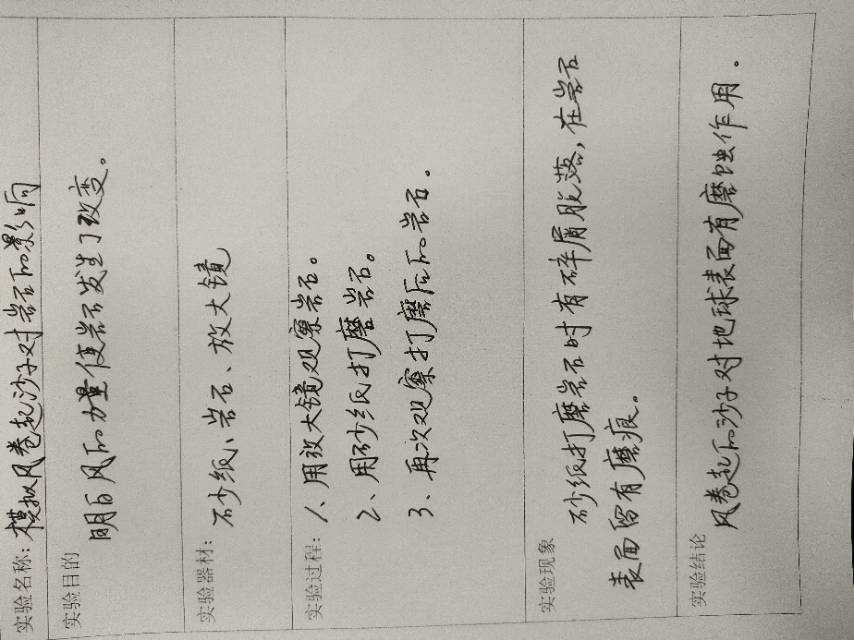 实验名称：模拟风卷起沙子对岩石的影响
实验目的
明白风的力量使岩石发生了改变。
实验器材：
砂纸、岩石、放大镜
实验过程：
1、用放大镜观察岩石。
2、用砂纸打磨岩石。
3、再次观察打磨后的岩石。
实验现象
砂纸打磨岩石时有碎屑脱落，在岩石
表面留有磨痕。
实验结论
风卷起的沙子对地球表面有磨蚀作用．